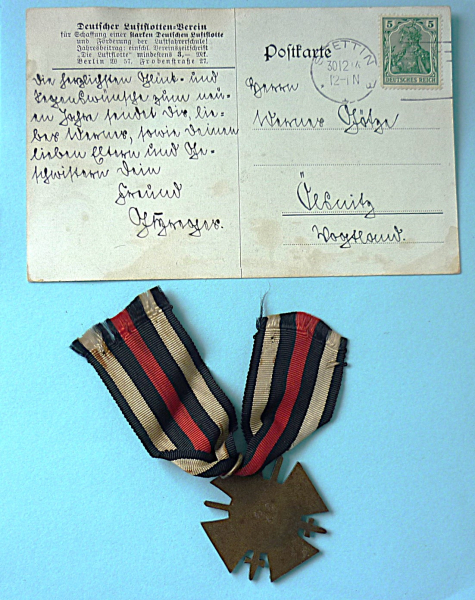 Deutscher Luftflotten-Verein
für Schaffung einer starken Deutschen Luftflotte
und Förderung der Luftfahrerschule!
Jahresbeitrag: einschl. Vereinszeitschrift
"Die Luftflotte" mindestens 3,— Mk.
Berlin W 57, Frobenstraße 27.
Die herzlichsten Glück- und
Segenswünsche zum neu-
en Jahre sendet Dir, lie-
ber Werner, sowie Deinen
lieben Eltern und Ge-
schwistern Dein
Freund
Postkarte
STETTIN
30.12
12-1 N
5 5
DEUTSCHES REICH
Herrn
Werner Götze
Ölsnitz
Vogtland.